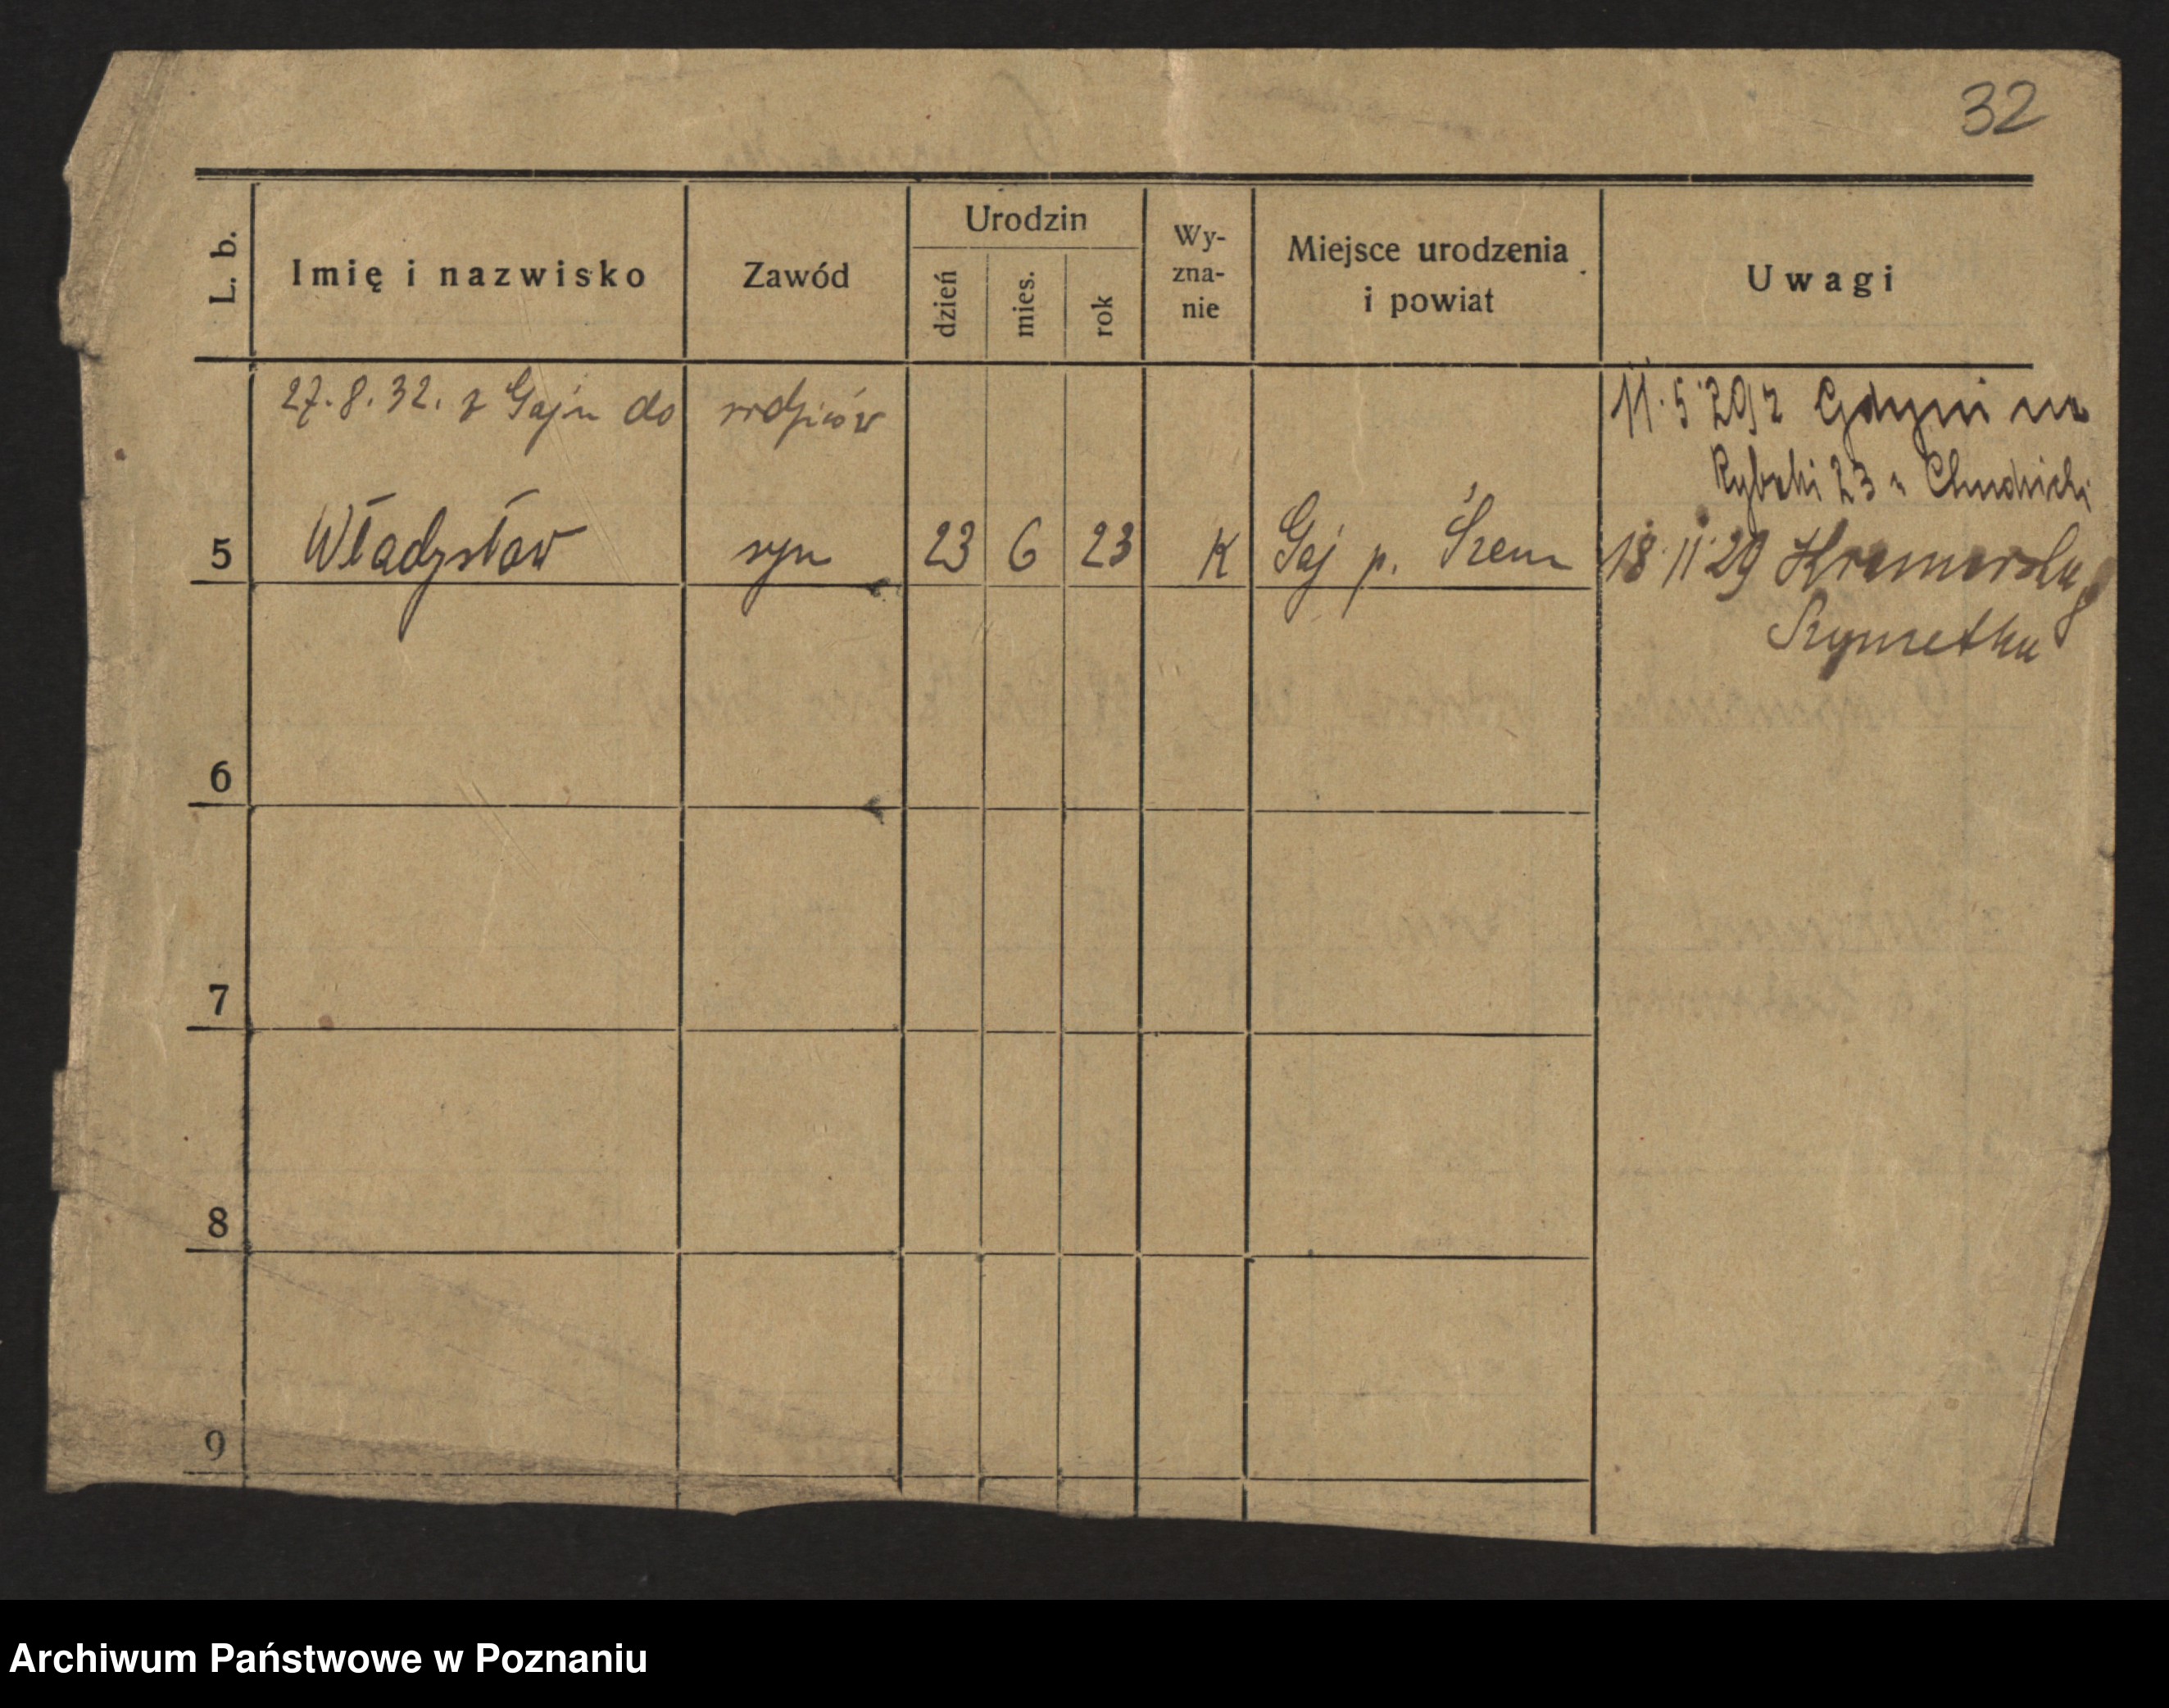 32
L. b.
Imię i nazwisko
Zawód
Urodzin
dzień
mies.
rok
Wy-
zna-
nie
Miejsce urodzenia
i powiat
Uwagi
27.8.32. z Gaju do rodziców
11.5.29 z Gdyni na
Rybaki 23 u
5 Władysław syn 23 6 23 K Gaj p. Śrem
18.11.29
6
7
8
9
Archiwum Państwowe w Poznaniu